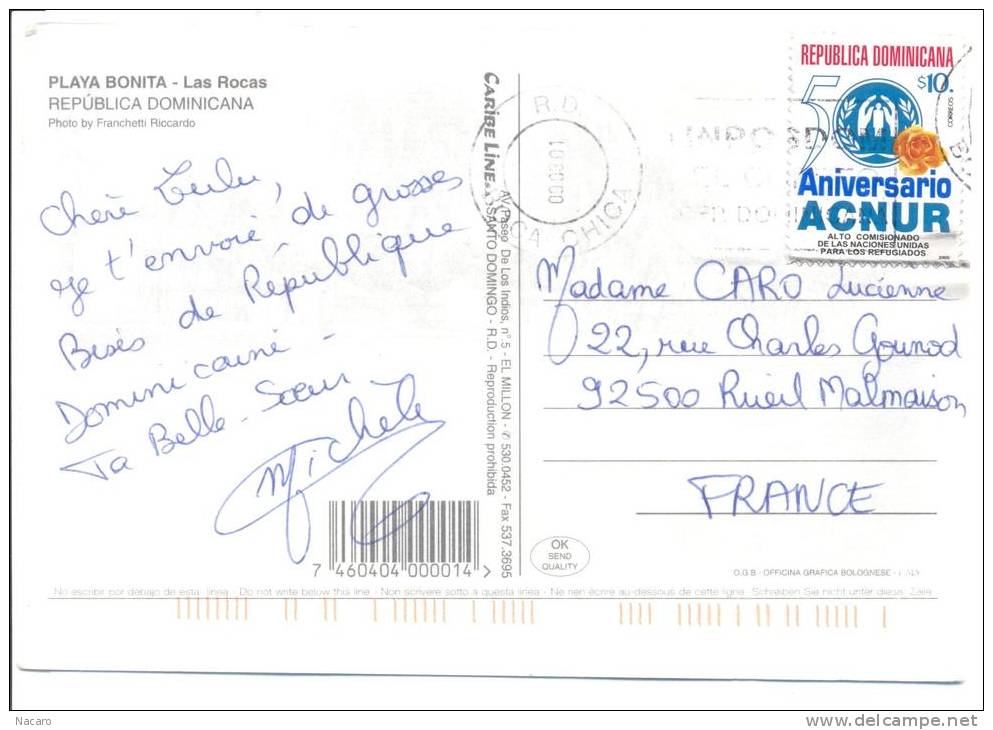 PLAYA BONITA - Las Rocas
REPÚBLICA DOMINICANA
Photo by Franchetti Riccardo
Chère Lulu,
je t'envoie de grosses
Bisés de République
Dominicaine -
Ta Belle-Soeur
Michele
7 460404 000014 >
CARIBE LINE
AV. Paseo De Los Indios, n° 5 - EL MILLON - ✆ 530.0452 - Fax 537.3695
SANTO DOMINGO - R.D. - Reproduction prohibida
R.D.
CHICA
REPUBLICA DOMINICANA
50
$10.
CORREOS
Aniversario
ACNUR
ALTO COMISIONADO
DE LAS NACIONES UNIDAS
PARA LOS REFUGIADOS
2000
Madame CARO Lucienne
22, rue Charles Gounod
92500 Rueil Malmaison
FRANCE
OK
SEND
QUALITY
O.G.B - OFFICINA GRAFICA BOLOGNESE - ITALY
No escribir por debajo de esta linea - Do not write below this line - Non scrivere sotto a questa linea - Ne rien écrire au-dessous de cette ligne - Schreiben Sie nicht unter diese Zeile
Nacaro
www.delcampe.net